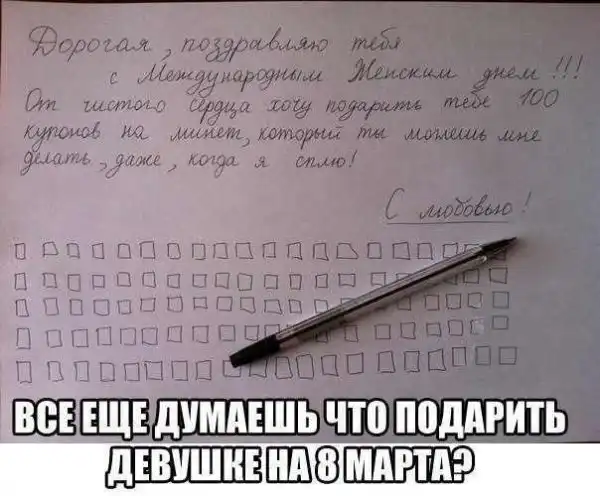 Дорогая, поздравляю тебя
с Международным Женским днем!!!
От чистого сердца хочу подарить тебе 100
купонов на минет, который ты можешь мне
делать, даже, когда я сплю!
С любовью!
ВСЕ ЕЩЕ ДУМАЕШЬ ЧТО ПОДАРИТЬ
ДЕВУШКЕ НА 8 МАРТА?